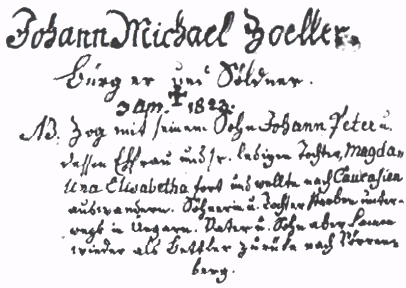 Johann Michael Zoeller.
Bürger und Söldner.
3 Apr. ✝ 1823.
NB. Zog mit seinem Sohn Johann Peter u.
dessen Ehfrau und sr. ledigen Tochter, Magda-
lena Elisabetha fort und wollte nach Caucasien
auswandern. Söhnerin u. Tochter starben unter-
wegs in Ungarn. Vater u. Sohn aber kamen
wieder als Bettler zurück nach
berg.